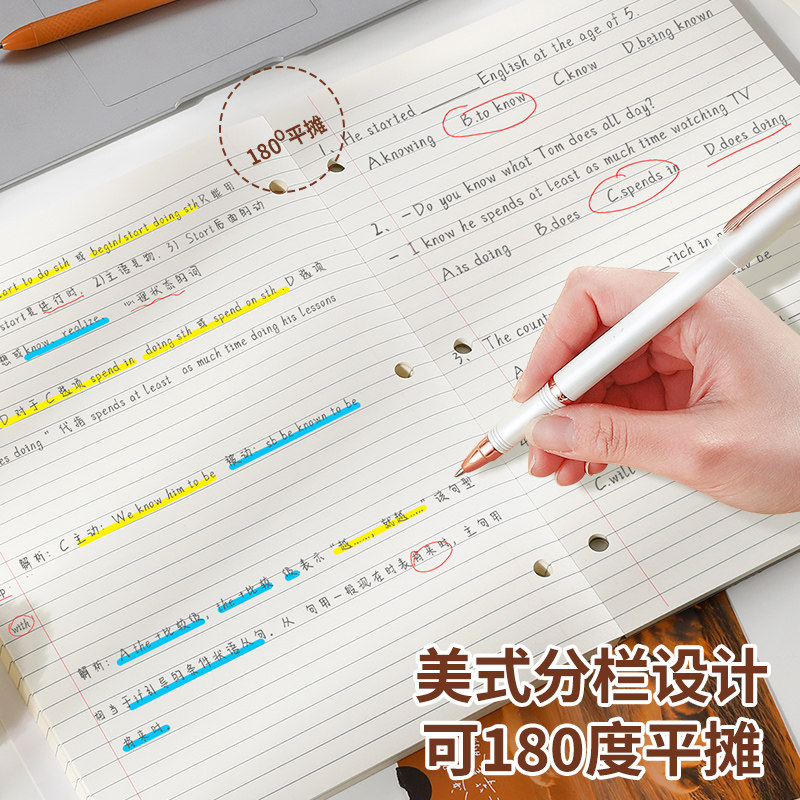 180°平摊
1、He started ______ English at the age of 5.
A.knowing B.to know C.know D.being known
2、-Do you know what Tom does all day?
- I know he spends at least as much time watching TV
A.is doing B.does C.spends in D.does doing
rich in
3、The count
to be
C.will
start to do sth 或 begin/start doing sth 只能用
start是进行时. 2)主语是物. 3) Start后面的动
心理状态的词
想或know, realize
doing sth 或 spend on sth. D 选项
D 对于 C 选项 spend in
es doing" 代指 spends at least as much time doing his lessons
解析: C 主动: We know him to be 被动: sb be known to be
with
解析: A the+比较级, the+比较级 表示 "越……, 就越……" 该句型
相当于if引导的条件状语从句. 从句用一般现在时表有来时, 主句用
将来时
美式分栏设计
可180度平摊